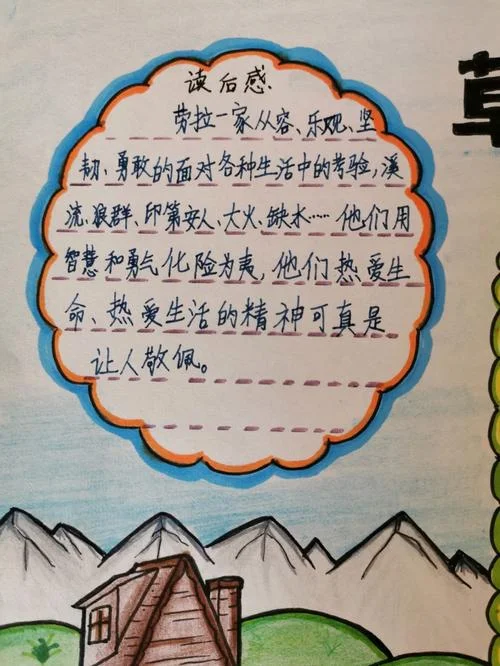 读后感
劳拉一家从容、乐观、坚
韧、勇敢的面对各种生活中的考验，溪
流、狼群、印第安人、大火、缺水……他们用
智慧和勇气化险为夷，他们热爱生
命、热爱生活的精神可真是
让人敬佩。
草